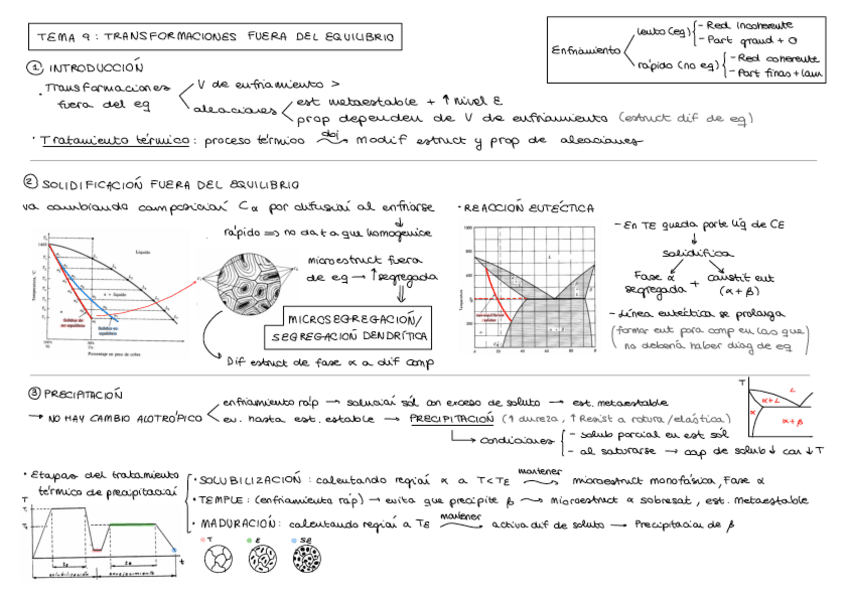 TEMA 9: TRANSFORMACIONES FUERA DEL EQUILIBRIO
Enfriamiento
lento (eq)
- Red incoherente
- Part grand + O
rápido (no eq)
- Red coherente
- Part finas + lam
1 INTRODUCCIÓN
· Transformaciones
fuera del eq
V de enfriamiento >
aleaciones
est metaestable + ↑ nivel E
prop dependen de V de enfriamiento (estruct dif de eq)
· Tratamiento térmico: proceso térmico obj modif estruct y prop de aleaciones
2 SOLIDIFICACIÓN FUERA DEL EQUILIBRIO
va cambiando composición Cα por difusión al enfriarse
rápido => no da t a que homogenice
microestruct fuera
de eq → ↑ segregada
MICROSEGREGACIÓN/
SEGREGACIÓN DENDRÍTICA
Dif estruct de fase α a dif comp
Líquido
α + líquido
Porcentaje en peso de cobre
· REACCIÓN EUTÉCTICA
- En TE queda parte líq de CE
solidifica
Fase α
segregada
+
constit eut
(α+β)
- Línea eutéctica se prolonga
(formar eut para comp en las que
no debería haber diag de eq)
3 PRECIPITACIÓN
→ NO HAY CAMBIO ALOTRÓPICO
enfriamiento ráp → solución sól con exceso de soluto → est. metaestable
ev. hasta est. estable → PRECIPITACIÓN (↑ dureza, ↑ Resist a rotura/elástica)
condiciones
- solub parcial en est sól
- al saturarse → cap de solub ↓ con ↓ T
T
L
α+L
α
α+β
· Etapas del tratamiento
térmico de precipitación
· SOLUBILIZACIÓN: calentando región α a T<TE mantener microestruct monofásica, Fase α
· TEMPLE: (enfriamiento ráp) → evita que precipite β microestruct α sobresat, est. metaestable
· MADURACIÓN: calentando región a TE mantener activa dif de soluto → Precipitacion de β
T
t
solubilización
envejecimiento
T
E
SE